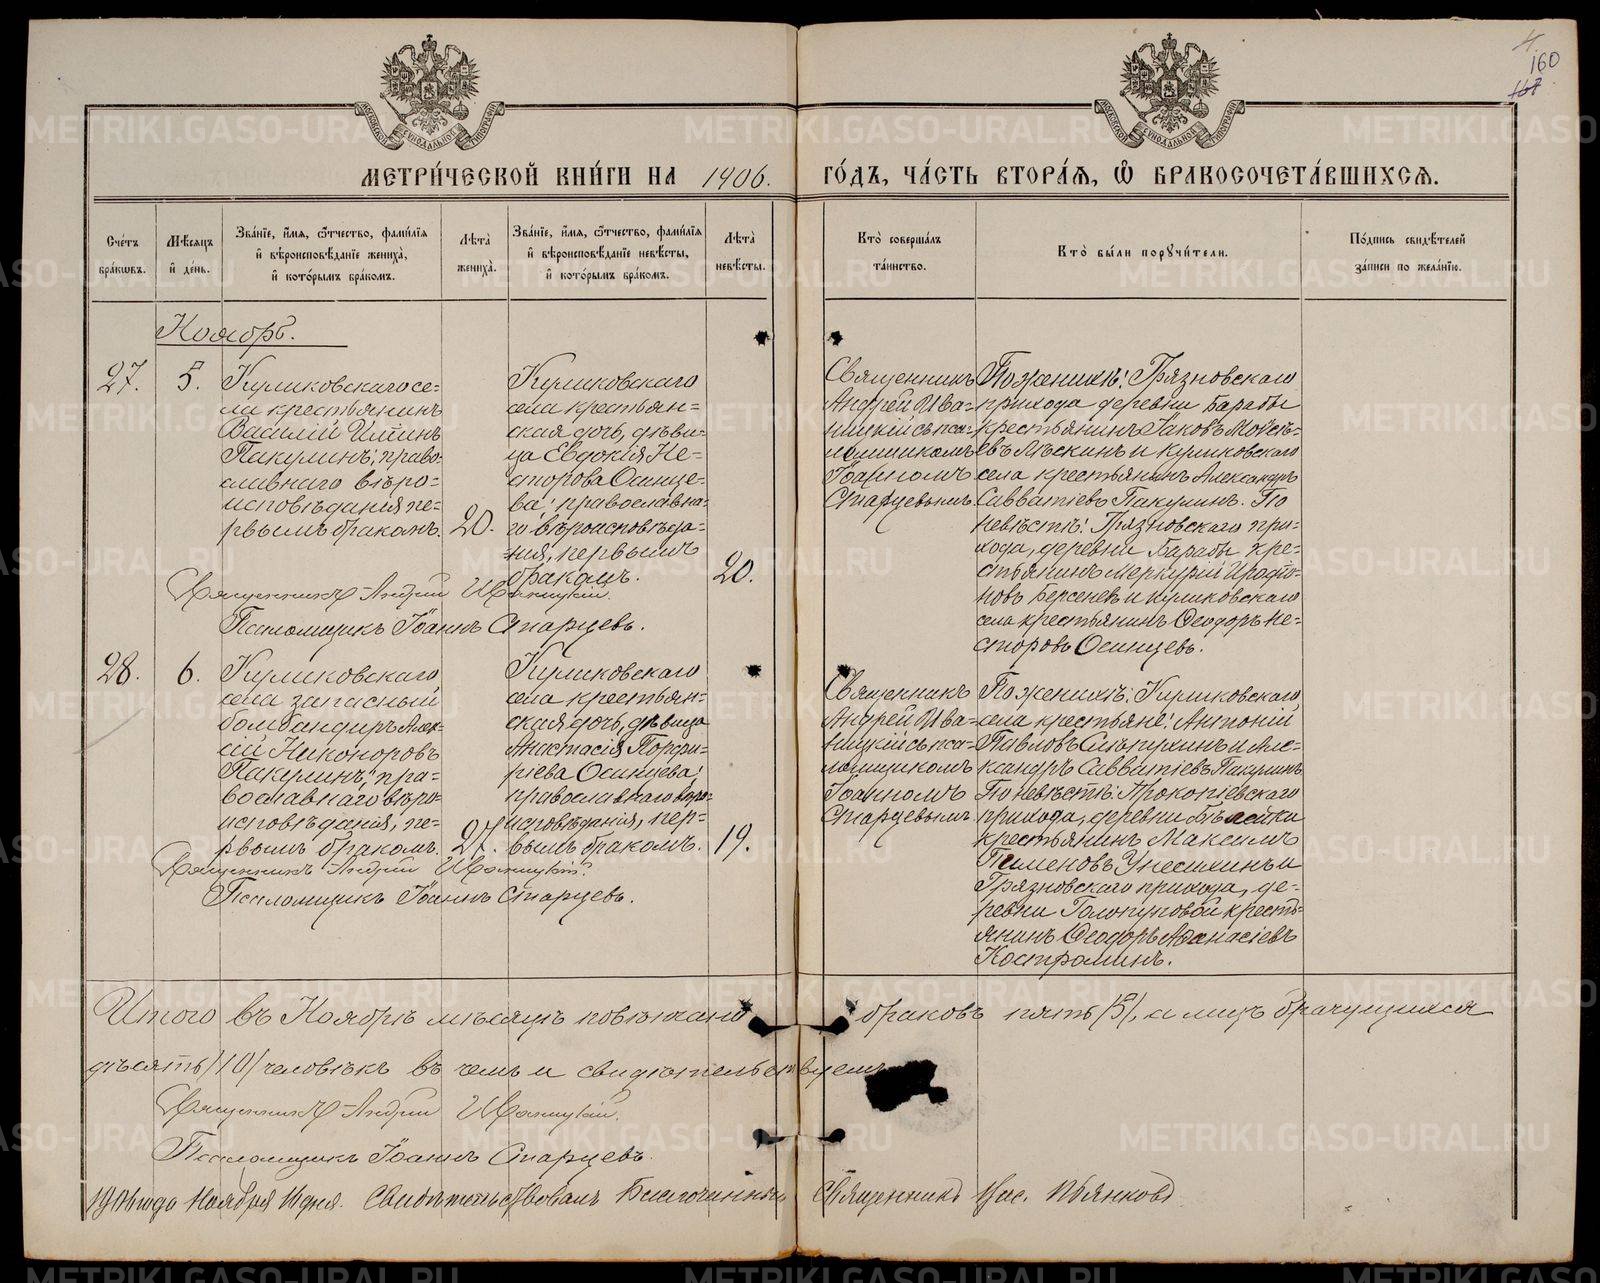 160
МЕТРИ́ЧЕСКОЙ КНИ́ГИ НА 1906. ГО́ДЪ, ЧА́СТЬ ВТОРА́Я, Ѿ БРАКОСОЧЕТА́ВШИХСЯ.
Сче́тъ бра́ковъ.
Мѣ́сяцъ и́ де́нь.
Зва́нїе, и́мя, ѻ́тчество, фами́лїя
и́ вѣроисповѣ́данїе жениха̀,
и́ кото́рымъ бра́комъ.
Лѣ́та жениха̀.
Зва́нїе, и́мя, ѻ́тчество, фами́лїя
и́ вѣроисповѣ́данїе невѣ́сты,
и́ кото́рымъ бра́комъ.
Лѣ́та невѣ́сты.
Кто̀ соверша́лъ
та́инство.
Кто̀ бы́ли поручи́тели.
По́дпись свидѣ́телей
за́писи по жела́нїю.
Ноябрь.
27.
5.
Куликовскаго се-
ла крестьянинъ
Василій
Пакулинъ; право-
славнаго вѣро-
исповѣданія пе-
рвымъ бракомъ.
20.
Куликовскаго
села крестьян-
ская дочь, дѣви-
ца Евдокія Не-
сторова Осинце-
ва; православна-
го вѣроисповѣда-
нія, первымъ
бракомъ.
20.
Священникъ
Андрей Ива-
ницкій съ пса-
ломщикомъ
Іоанномъ
Старцевымъ
По женихѣ: Грязновскаго
прихода деревни Барабы
крестьянинъ Іаковъ Моисѣ-
евъ Лѣскинъ и Куликовскаго
села крестьянинъ Александръ
Савватіевъ Пакулинъ. По
невѣстѣ: Грязновскаго при-
хода, деревни Барабы кре-
стьянинъ Меркурій Иродіо-
новъ Берсеневъ и Куликовскаго
села крестьянинъ Ѳеодоръ Не-
сторовъ Осинцевъ.
Священникъ Андрей Иваницкій.
Псаломщикъ Іоаннъ Старцевъ.
28.
6.
Куликовскаго
села запасный
бомбандиръ Алек-
сій Никоноровъ
Пакулинъ; пра-
вославнаго вѣро-
исповѣданія, пе-
рвымъ бракомъ.
27.
Куликовскаго
села крестьян-
ская дочь, дѣвица
Анастасія Порфи-
ріева Осинцева;
православнаго вѣро-
исповѣданія, пер-
вымъ бракомъ.
19.
Священникъ
Андрей Ива-
ницкій съ пса-
ломщикомъ
Іоанномъ
Старцевымъ
По женихѣ: Куликовскаго
села крестьяне: Антоній
Павловъ Слѣпухинъ и Але-
ксандръ Савватіевъ Пакулинъ
По невѣстѣ: Прокопіевскаго
прихода, деревни Бѣлейки
крестьянинъ Максимъ
Пименовъ и
Грязновскаго прихода, де-
ревни Голопуповой кресть-
янинъ Ѳеодоръ Аѳанасіевъ
Костроминъ.
Священникъ Андрей Иваницкій.
Псаломщикъ Іоаннъ Старцевъ.
Итого въ Ноябрѣ мѣсяцѣ повѣнчано браковъ пять /5/, а лицъ брачущихся
дѣсять /10/ человѣкъ въ чемъ и свидѣтельствуемъ
Священникъ Андрей Иваницкій.
Псаломщикъ Іоаннъ Старцевъ.
года Ноября дня. Свидѣтельствовалъ Благочинный Священникъ Пьянковъ
METRIKI.GASO-URAL.RU